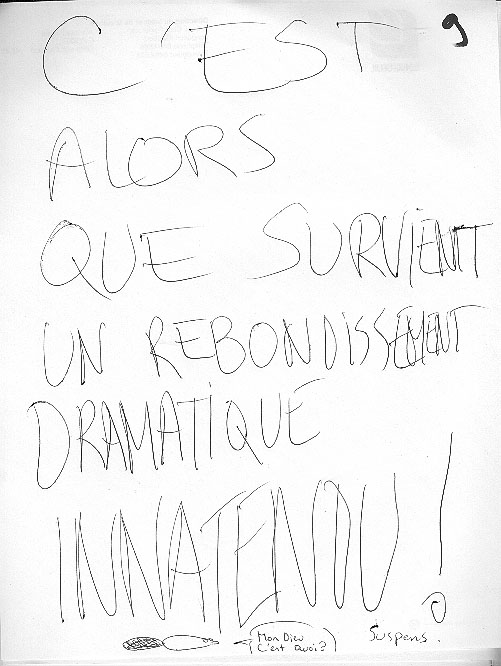 C'EST
9
ALORS
QUE SURVIENT
UN REBONDISSEMENT
DRAMATIQUE
INNATENDU!
Mon Dieu
C'est quoi?
Suspens.